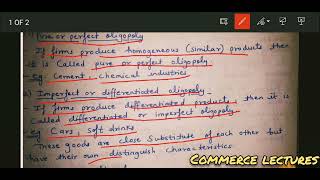 1 OF 2
Pure or perfect oligopoly
If firms produce homogeneous (similar) products then
it is called pure or perfect oligopoly.
eg. Cement, chemical industries
Imperfect or differentiated oligopoly
If firms produce differentiated products, then it is
called differentiated or imperfect oligopoly.
eg Cars, Soft drinks
These goods are close Substitute of each other but
have their own distinguish characteristics
COMMERCE LECTURES